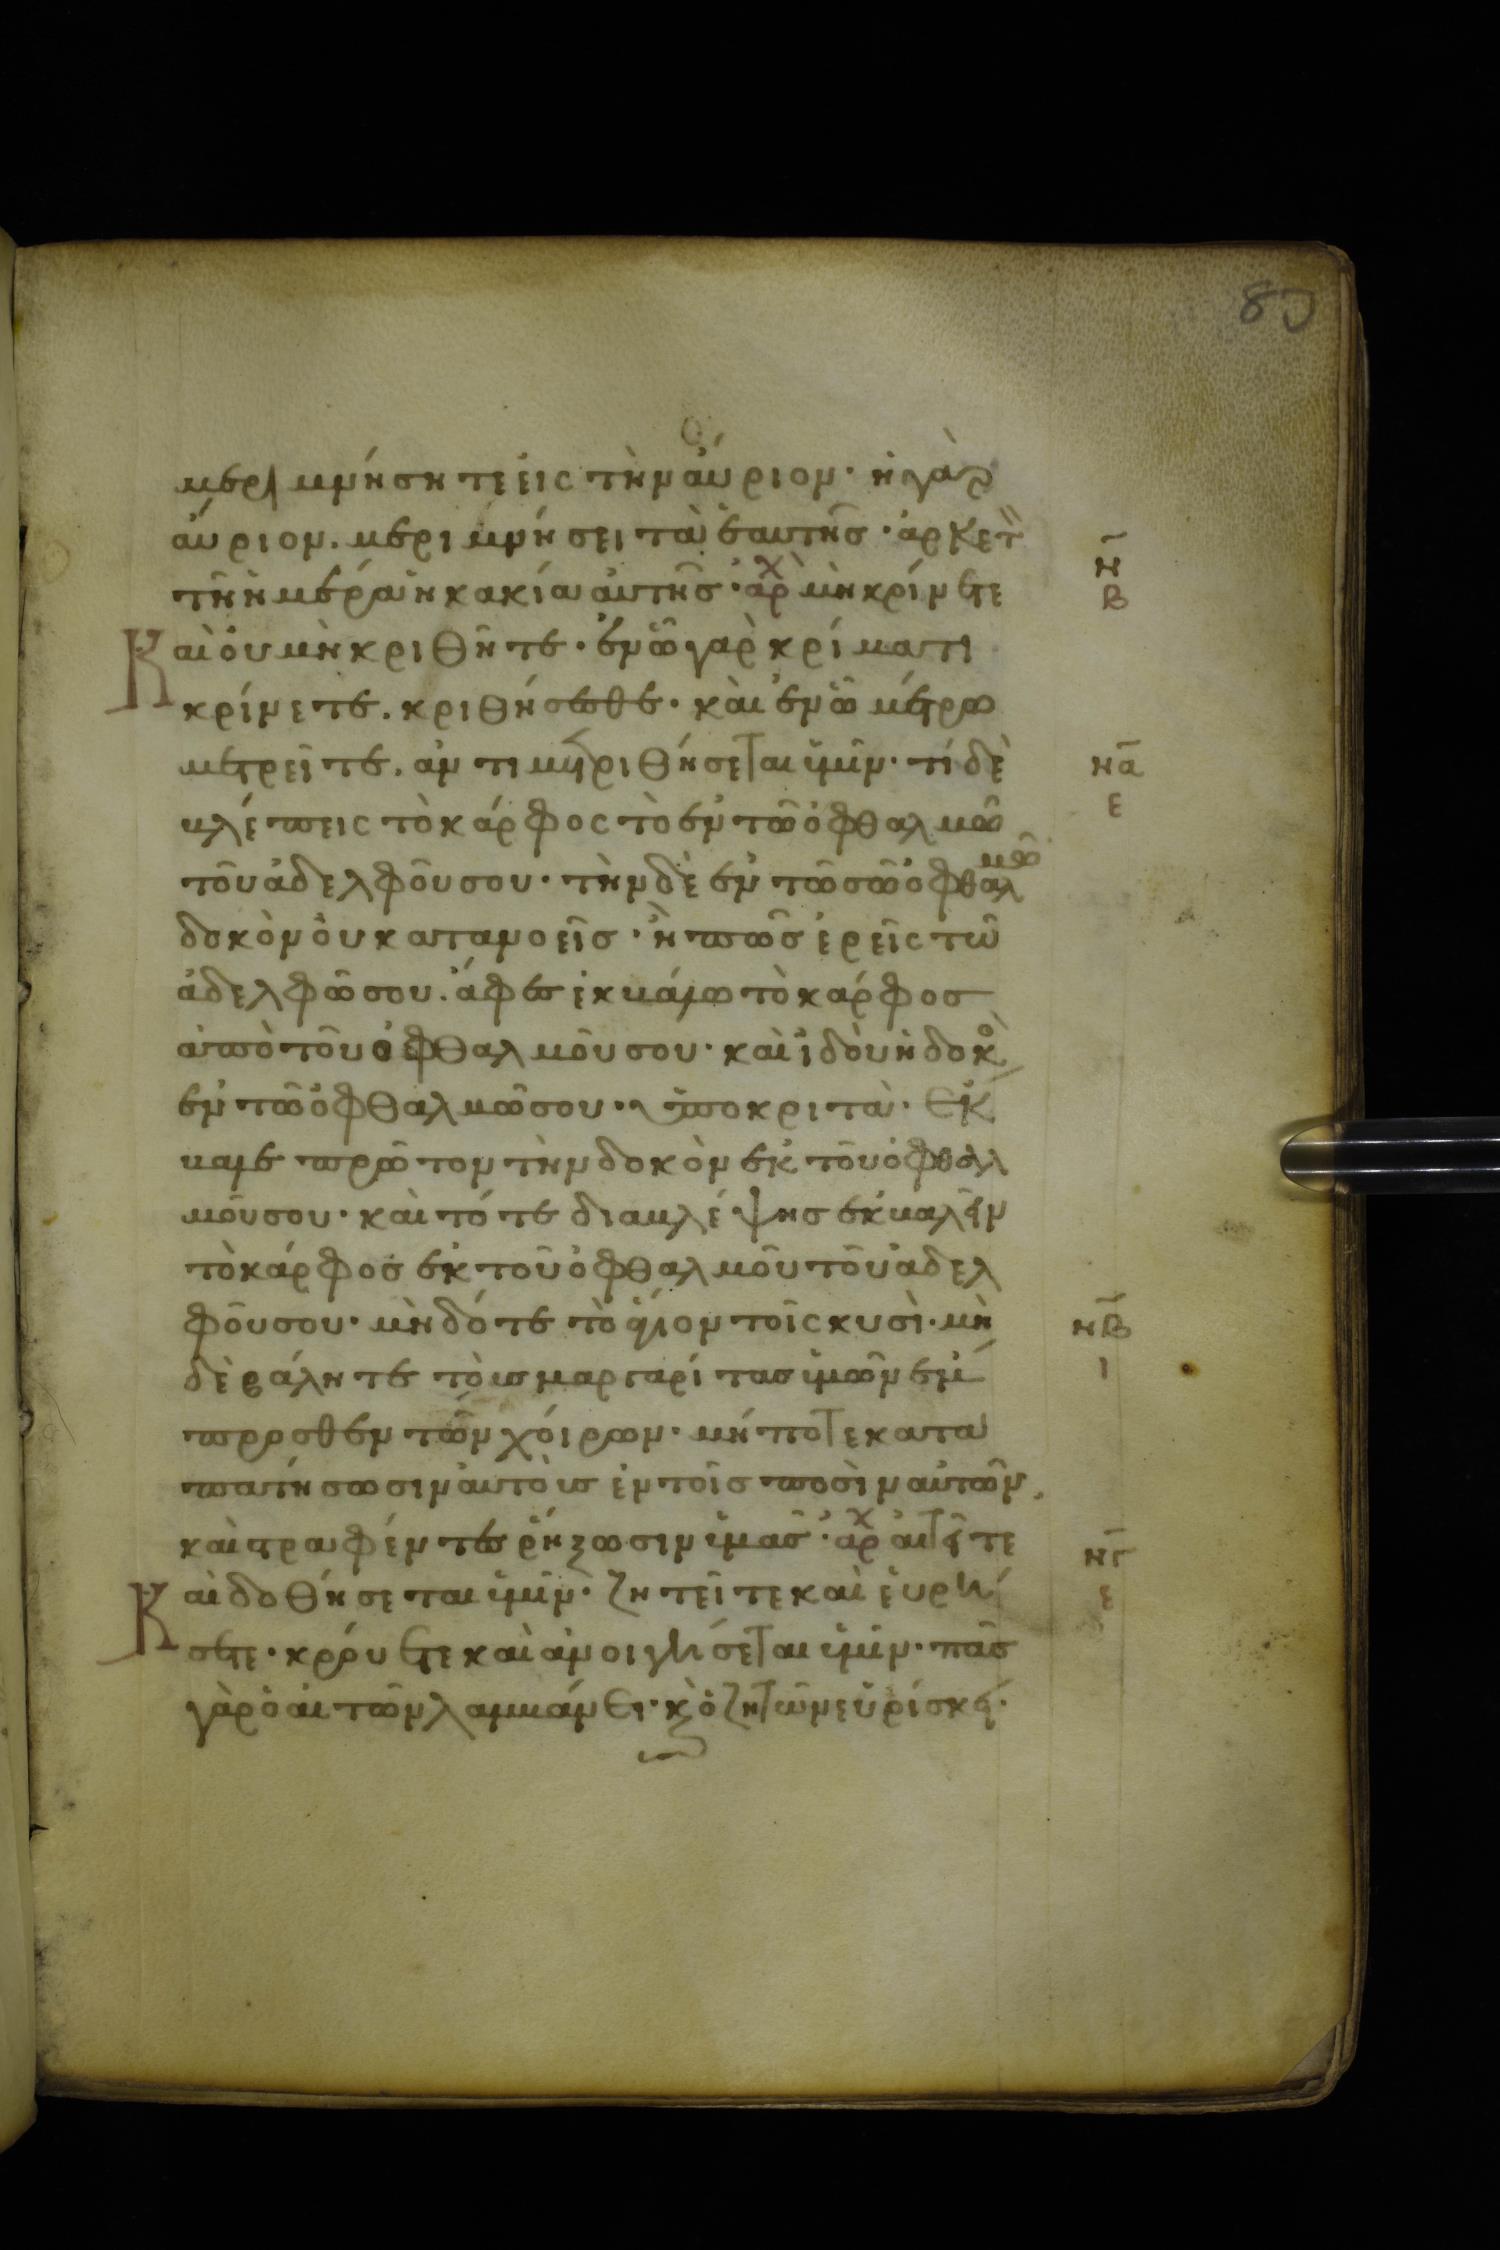 83
μεριμνήσητε εἰς τὴν ἀύριον· ἡ γὰρ
ἀύριον. μεριμνήσει τὰ ἑαυτῆς· ἀρκετὸ
τῆ ἡμέρα ἡ κακία ἀυτῆς· ἀρχ μὴ κρίνετε
Καὶ ὀυ μὴ κριθῆτε· ἐν ῶ γαρ κρίματι
κρίνετε. κριθήσεσθε· καὶ ἐν ῶ μέτρω
μετρεῖτε. ἀντιμετριθήσεται ὑμῖν· τί δὲ
βλέπεις τὸ κάρφος τὸ ἐν τῶ ὀφθαλμῶ
τοῦ ἀδελφοῦ σου· τὴν δὲ ἐν τῶ σῶ ὀφθαλμῶ
δοκὸν ὀυ κατανοεῖς· ἢ πῶς ἐρεῖς τῶ
ἀδελφῶ σου. ἄφες ἐκβάλω τὸ κάρφος
ἀπὸ τοῦ ὀφθαλμοῦ σου· καὶ ἰδοὺ ἡ δοκὸ
ἐν τῶ ὀφθαλμῶ σου· ὑποκριτὰ· ἔκ
βαλε πρῶτον τὴν δοκὸν ἐκ τοῦ ὀφθαλ
μοῦ σου· καὶ τότε διαβλέψης ἐκβαλεῖν
τὸ κάρφος ἐκ τοῦ ὀφθαλμοῦ τοῦ ἀδελ
φοῦ σου· μὴ δότε τὸ ἅγιον τοῖς κυσὶ· μὴ
δὲ βάλητε τοὺς μαργαρίτας ὑμῶν ἔμ
προσθεν τῶν χοίρων· μήποτε κατα
πατήσωσιν ἀυτοὺς ἐν τοῖς ποσὶν αὐτῶν.
καὶ τραφέντες ῥήξωσιν ὑμᾶς· ἀρχ αἰτεῖτε
Καὶ δοθήσεται ὑμῖν· ζητεῖτε καὶ ἑυρή
σετε· κρούετε καὶ ἀνοιγήσεται ὑμῖν· πᾶς
γὰρ ὁ αἰτῶν λαμβάνει· κὸ ζητῶν εὑρίσκει·
νη
β
να
ε
νβ
ι
νγ
ε